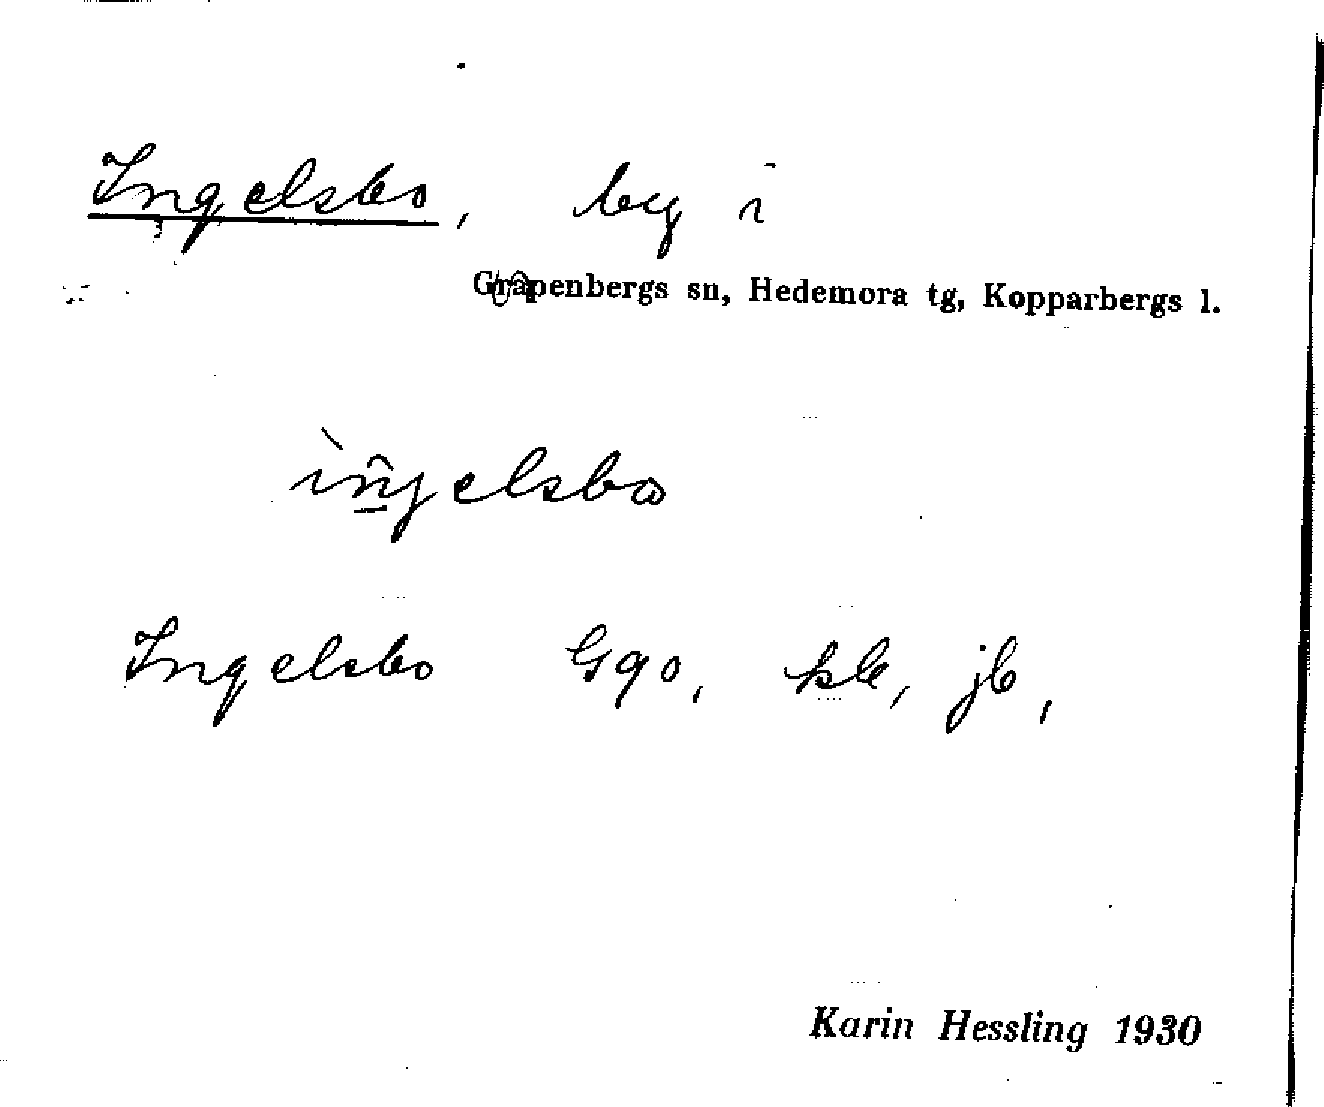 Ingelsbo, by i
Gråpenbergs sn, Hedemora tg, Kopparbergs l.
ìngelsbo
Ingelsbo Ggo, skb, jb,
Karin Hessling 1930